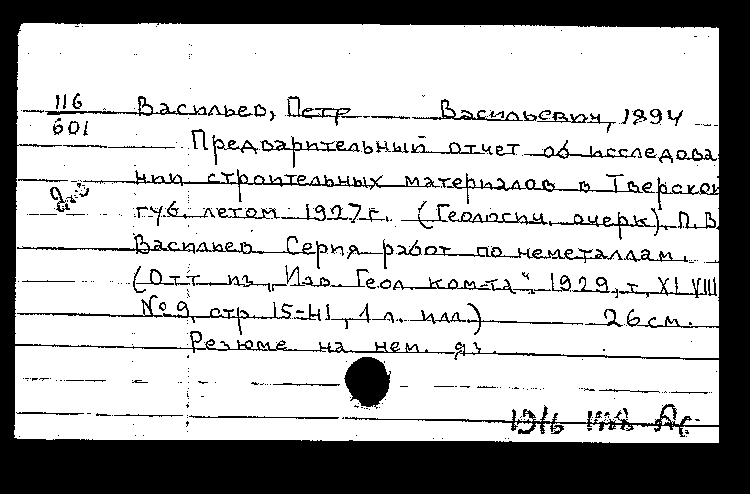 116
601
Васильев, Петр Васильевич, 1894
Предварительный отчет об исследова
нии строительных материалов в Тверской
губ. летом 1927г. (Геологич. очерк). П.В.
Васильев. Серия работ по неметаллам.
(Отт. из „Изв. Геол. ком-та“. 1929, т. XLVIII
№ 9, стр. 15-41, 1 л. илл.) 26 см.
Резюме на нем. яз.